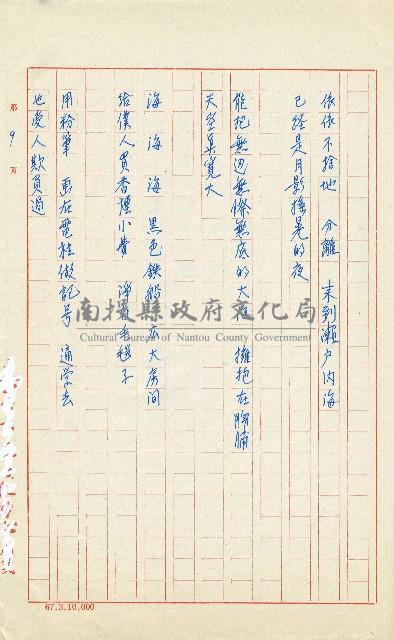 依依不捨地 分離 来到瀨户内海
已經是月影搖晃的夜
能把無边無際無底的大 擁抱在胸脯
天空真寬大
海 海 海 黑色鉄船 大房間
給僕人買香煙小費 毛毯子
用粉筆 画在電柱做記号 通学去
也受人欺負過
第 9 頁
南投縣政府文化局
Cultural Bureau of Nantou County Government
67.3.10,000